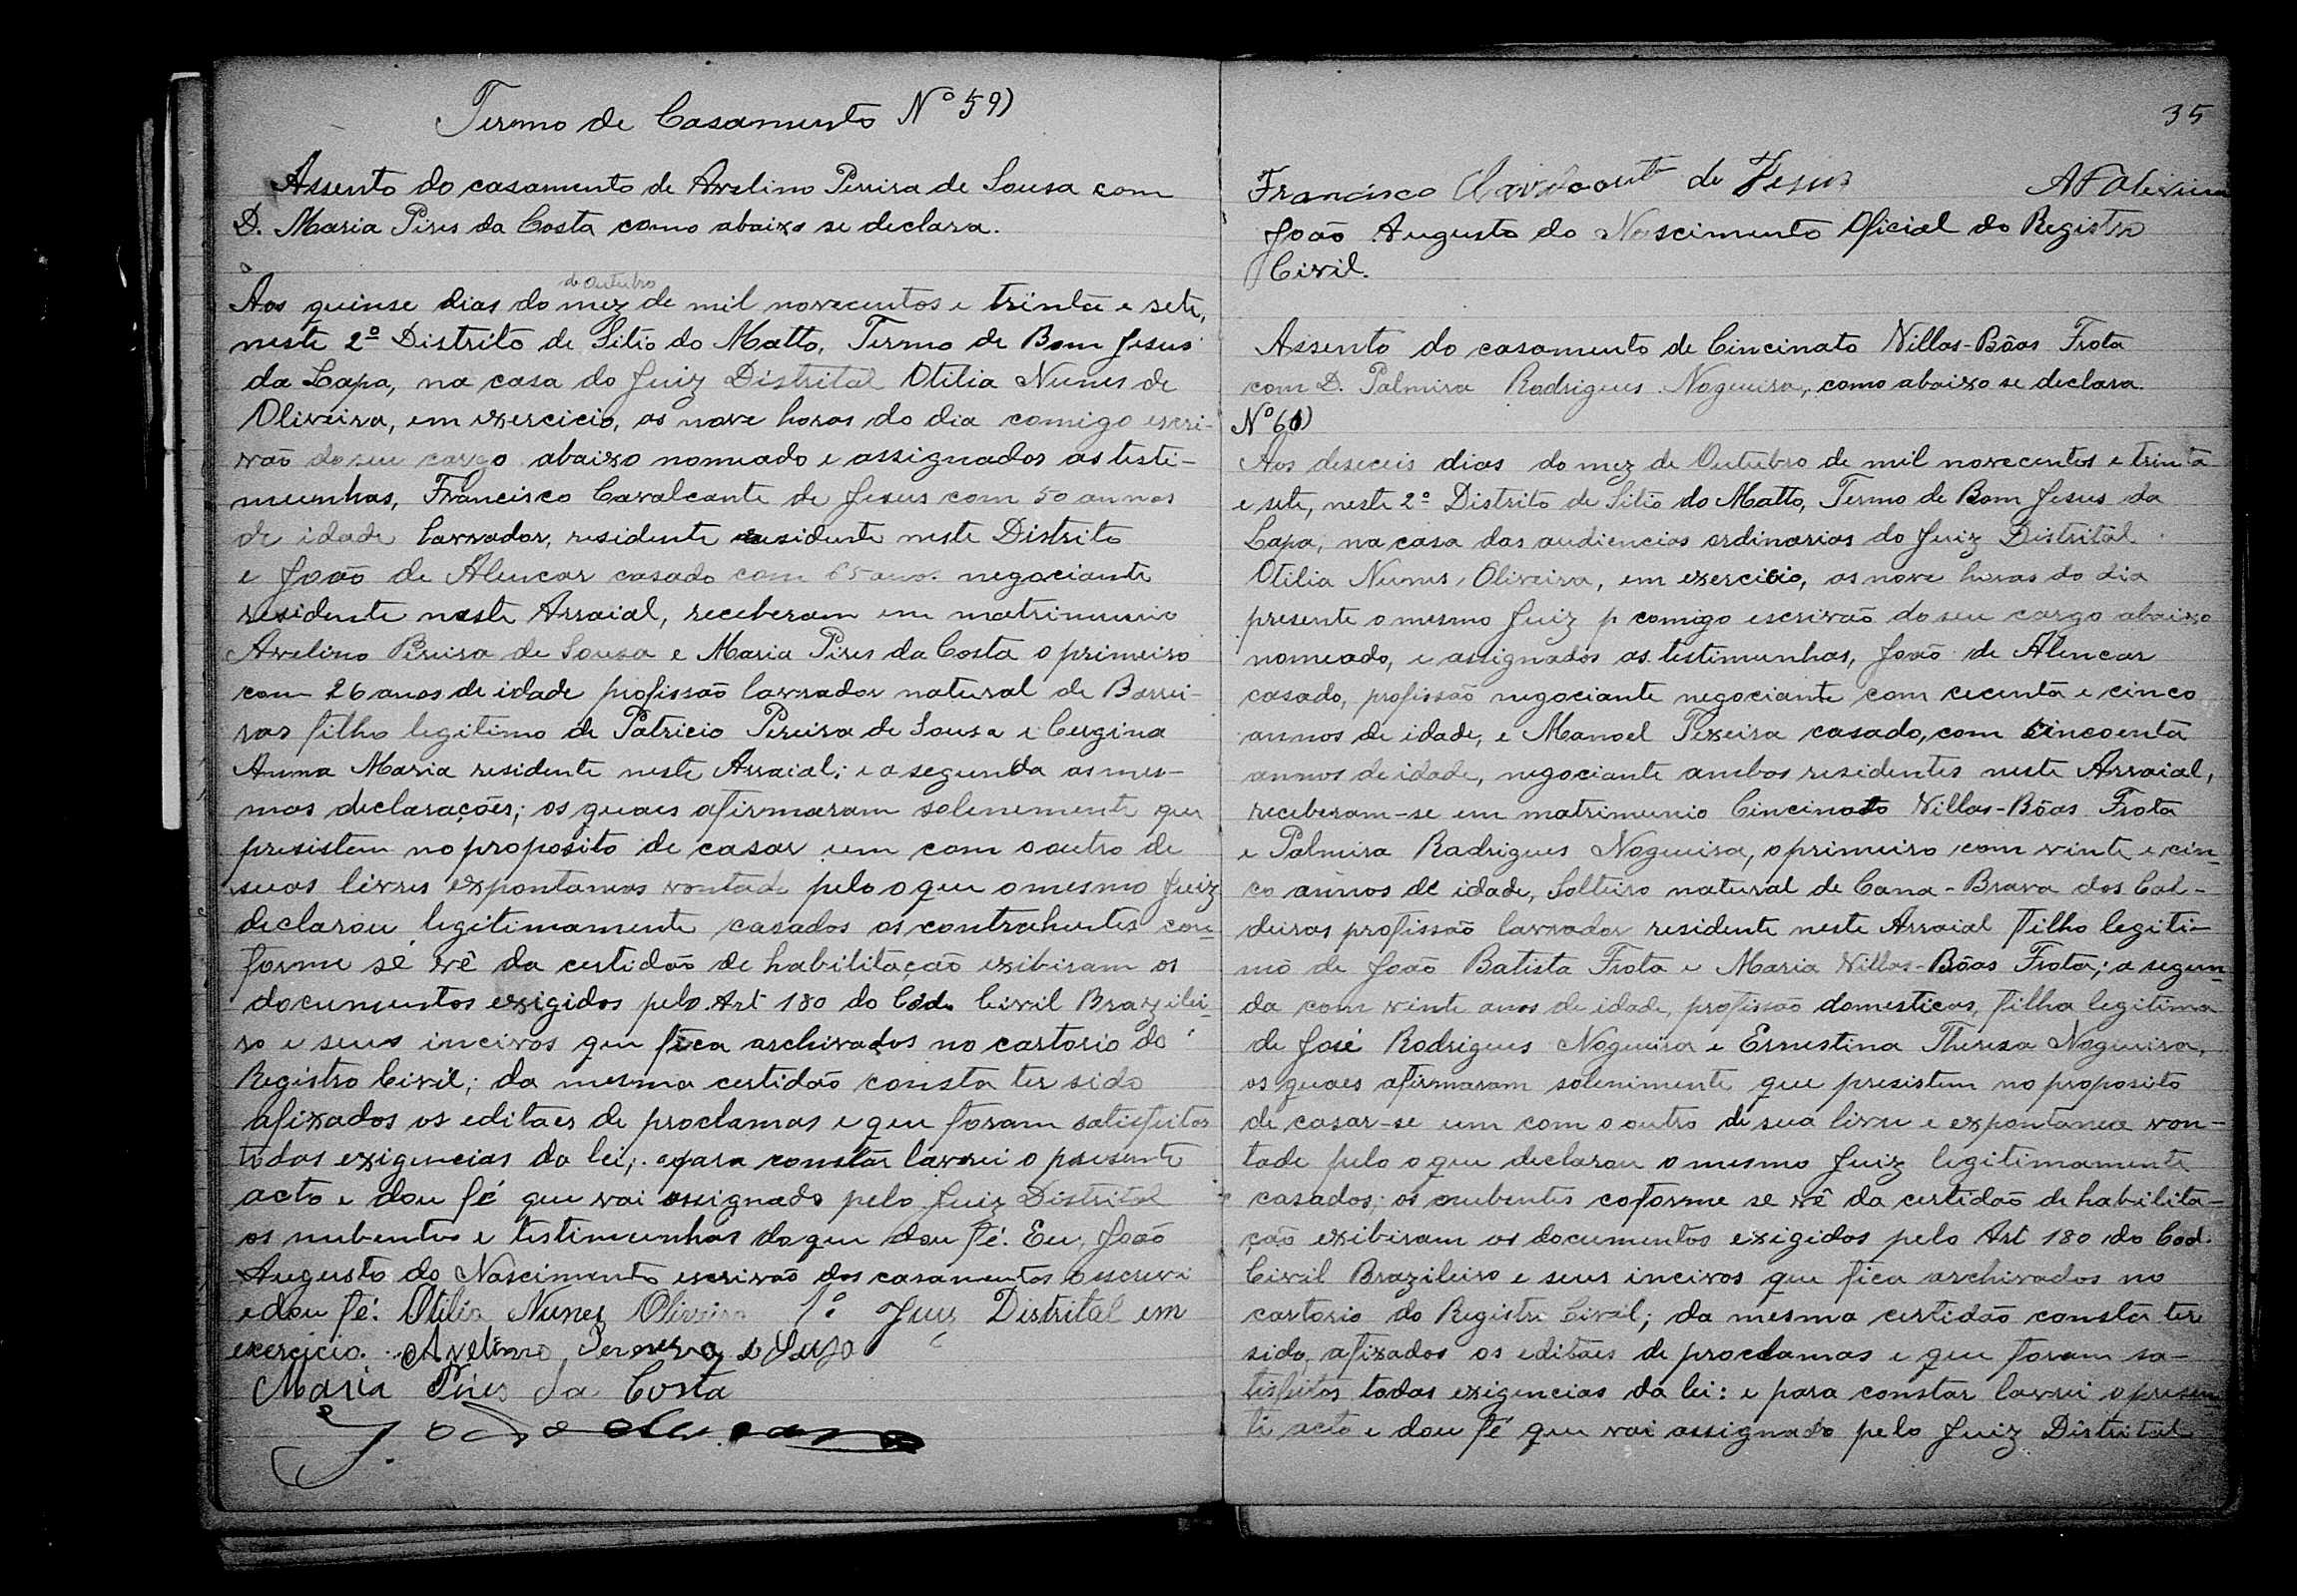 Termo de Casamento Nº 59)
Assento do casamento de Avelino Pereira de Sousa com
D. Maria Pires da Costa como abaixo se declara.
de Outubro
Aos quinse dias do mez de mil novecentos e trinta e sete,
neste 2º Distrito de Sitio do Matto, Termo de Bom Jesus
da Lapa, na casa do Juiz Distrital Otilia Nunes de
Oliveira, em exercicio, as nove horas do dia comigo escri-
vão do seu cargo abaixo nomeado e assignados as testi-
munhas, Francisco Cavalcante de Jesus com 50 annos
de idade lavrador, residente residente neste Distrito
e João de Alencar casado com 65 anos negociante
residente neste Arraial, receberam em matrimunio
Avelino Pereira de Sousa e Maria Pires da Costa o primeiro
com 26 anos de idade profissão lavrador natural de Barrei-
ras filho legitimo de Patricio Pereira de Sousa e Cergina
Anna Maria residente neste Arraial; e a segunda as mes-
mas declarações; os quaes afirmaram solenemente que
presistem no proposito de casar um com o outro de
suas livres expontaneas vontade pelo o que o mesmo Juiz
declarou legitimamente casados os contrahentes con-
forme se vê da certidão de habilitação exibiram os
documentos exigidos pelo Art 180 do Cod. Civil Brazilei-
ro e seus incivos que fica archivados no cartorio do
Registro Civil; da mesma certidão consta ter sido
afixados os editaes de proclamas e que foram satisfeitos
todas exigencias da lei; e para constar lavrei o presente
acto e dou fé que vai assignado pelo Juiz Distrital
os nubentes e testimunhas do que dou fé. Eu, João
Augusto do Nascimento escrivão dos casamentos o escrevi
e dou fé. Otilia Nunes Oliveira 1º Juiz Distrital em
exercicio. Avelino Pereira de Suza
Maria Pires da Costa
João de Alencar
35
Francisco Cavalcante de Jesus
João Augusto do Nascimento Oficial do Registro
Civil.
Assento do casamento de Cincinato Villas-Bôas Frota
com D. Palmira Rodrigues Nogueira, como abaixo se declara.
Nº 60)
Aos deseceis dias do mez de Outubro de mil novecentos e trinta
e sete, neste 2º Distrito de Sitio do Matto, Termo de Bom Jesus da
Lapa, na casa das audiencias ordinarias do Juiz Distrital
Otilia Nunes Oliveira, em exercicio, as nove horas do dia
presente o mesmo Juiz p comigo escrivão do seu cargo abaixo
nomeado, e assignados as testimunhas, João de Alencar
casado, profissão negociante negociante com cecenta e cinco
annos de idade, e Manoel Texeira casado, com cincoenta
annos de idade, negociante ambos residentes neste Arraial,
receberam-se em matrimunio Cincinato Villas-Bôas Frota
e Palmira Radrigues Nogueira, o primeiro com vinte e cin-
co annos de idade, Solteiro natural de Cana-Brava dos Cal-
deiras profissão lavrador residente neste Arraial filho legiti-
mo de João Batista Frota e Maria Villas-Bôas Frota; a segun-
da com vinte anos de idade, profissão domesticas, filha legitima
de José Rodrigues Nogueira e Ernestina Thereza Nogueira,
os quaes afirmaram solenimente que presistem no proposito
de casar-se um com o outro de sua livre e expontanea von-
tade pelo o que declarou o mesmo Juiz legitimamente
casados; os nubentes coforme se vê da certidão de habilita-
ção exibiram os documentos exigidos pelo Art 180 do Cod.
Civil Brazileiro e seus incivos que fica archivados no
cartorio do Registro Civil; da mesma certidão consta ter
sido, afixados os editaes de proclamas e que foram sa-
tisfeitos todas exigencias da lei: e para constar lavrei o presen-
te acto e dou fé que vai assignado pelo Juiz Distrital